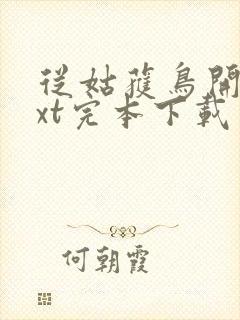 從姑獲鳥開
xt完本下載
何朝霞